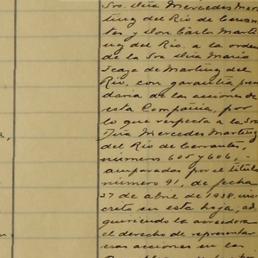 Sra. Dña Mercedes Mart
uez del Río de Cervan
tes y don Carlos Martí
uez del Río, a la orden
de la Sra. Dña María
Icaza de Martínez del
Río, con garantía pren
daria de las acciones de
esta Compañía, por
lo que respecta a la Sra
Dña Mercedes Martínez
del Río de Cervantes,
números 605 y 606,-
amparadas por el título
número 91, de fecha
27 de abril de 1938 ins
crito en esta hoja, ad
quiriendo la acreedora
el derecho de representar
esas acciones en las